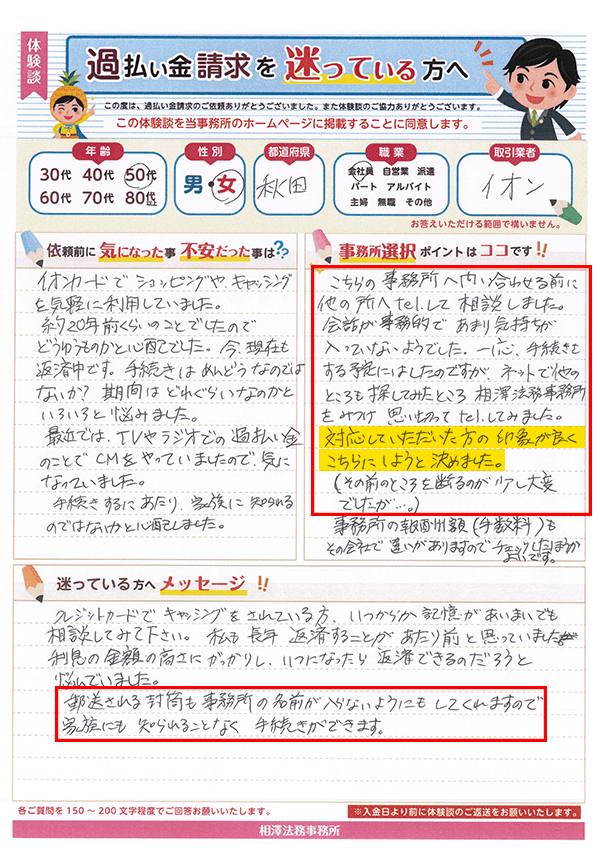 体験談
過払い金請求を迷っている方へ
この度は、過払い金請求のご依頼ありがとうございました。また体験談のご協力ありがとうございます。
この体験談を当事務所のホームページに掲載することに同意します。
年齢
30代 40代 50代
60代 70代 80代以上
性別
男・女
都道府県
秋田
職業
会社員 自営業 派遣
パート アルバイト
主婦 無職 その他
取引業者
イオン
お答えいただける範囲で構いません。
依頼前に気になった事 不安だった事は??
イオンカードでショッピングやキャッシング
を気軽に利用していました。
約20年前くらいのことでしたので
どうゆうものかと心配でした。今、現在も
返済中です。手続きはめんどうなのでは
ないか?期間はどれぐらいなのかと
いろいろと悩みました。
最近では、TVやラジオでの過払い金
のことでCMをやっていましたので気に
なっていました。
手続きするにあたり、家族に知られる
のではないかと心配しました。
事務所選択ポイントはココです!!
こちらの事務所へ問い合わせる前に
他の所へtelして相談しました。
会話が事務的であまり気持ちが
入っていないようでした。一応、手続きを
する予定にはしたのですがネットで他の
ところも探してみたところ相澤法務事務所
をみつけ思い切ってtelしてみました。
対応していただいた方の印象が良く
こちらにしようと決めました。
(その前のところを断るのが少し大変
でしたが…。)
事務所の報酬額(手数料)も
その会社で違いがありますのでチェックしたほうが
よいです。
迷っている方へメッセージ!!
クレジットカードでキャッシングをされている方、いつからか記憶があいまいでも
相談してみて下さい。私も長年返済することがあたり前と思っていましたが
利息の金額の高さにがっかりし、いつになったら返済できるのだろうと
悩んでいました。
郵送される封筒も事務所の名前が入らないようにもしてくれますので
家族にも知られることなく手続きができます。
各ご質問を150〜200文字程度でご回答お願いいたします。
※入金日より前に体験談のご返送をお願いいたします。
相澤法務事務所